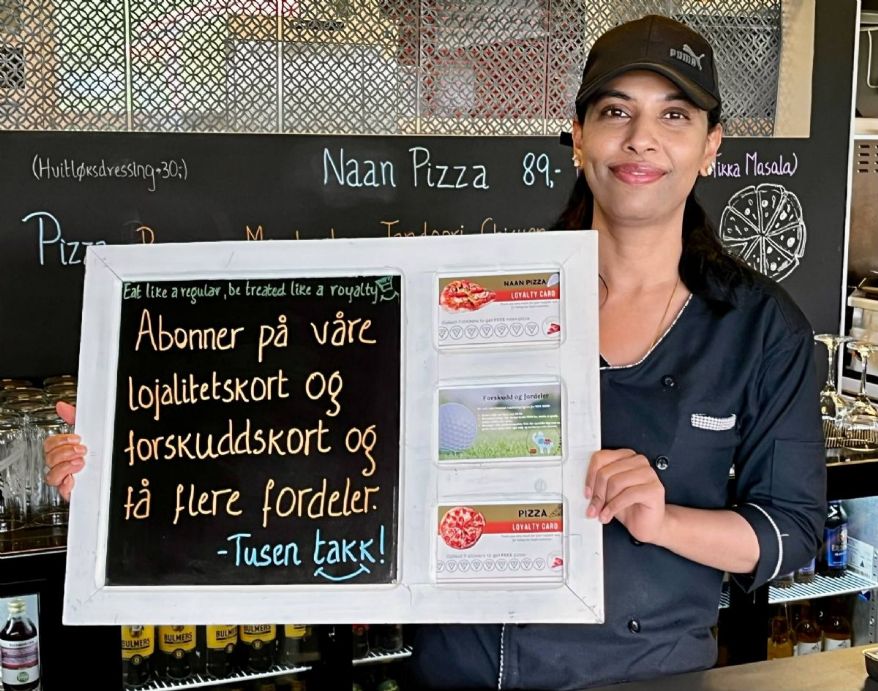 PUMA
(Hvitløksdressing+30;)
Naan Pizza 89,-
Tikka Masala)
Pizza
Tandoori Chicken
Eat like a regular, be treated like a royalty
Abonner på våre
lojalitetskort og
forskuddskort og
få flere fordeler.
-Tusen takk!
NAAN PIZZA
LOYALTY CARD
Forskudd og fordeler
PIZZA
LOYALTY CARD
BULMERS BULMERS BULMERS BULMERS